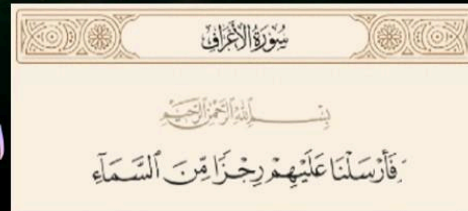 سُورَةُ الْأَعْرَافِ
بِسْمِ اللَّهِ الرَّحْمَٰنِ الرَّحِيمِ
فَأَرْسَلْنَا عَلَيْهِمْ رِجْزًا مِّنَ السَّمَآءِ